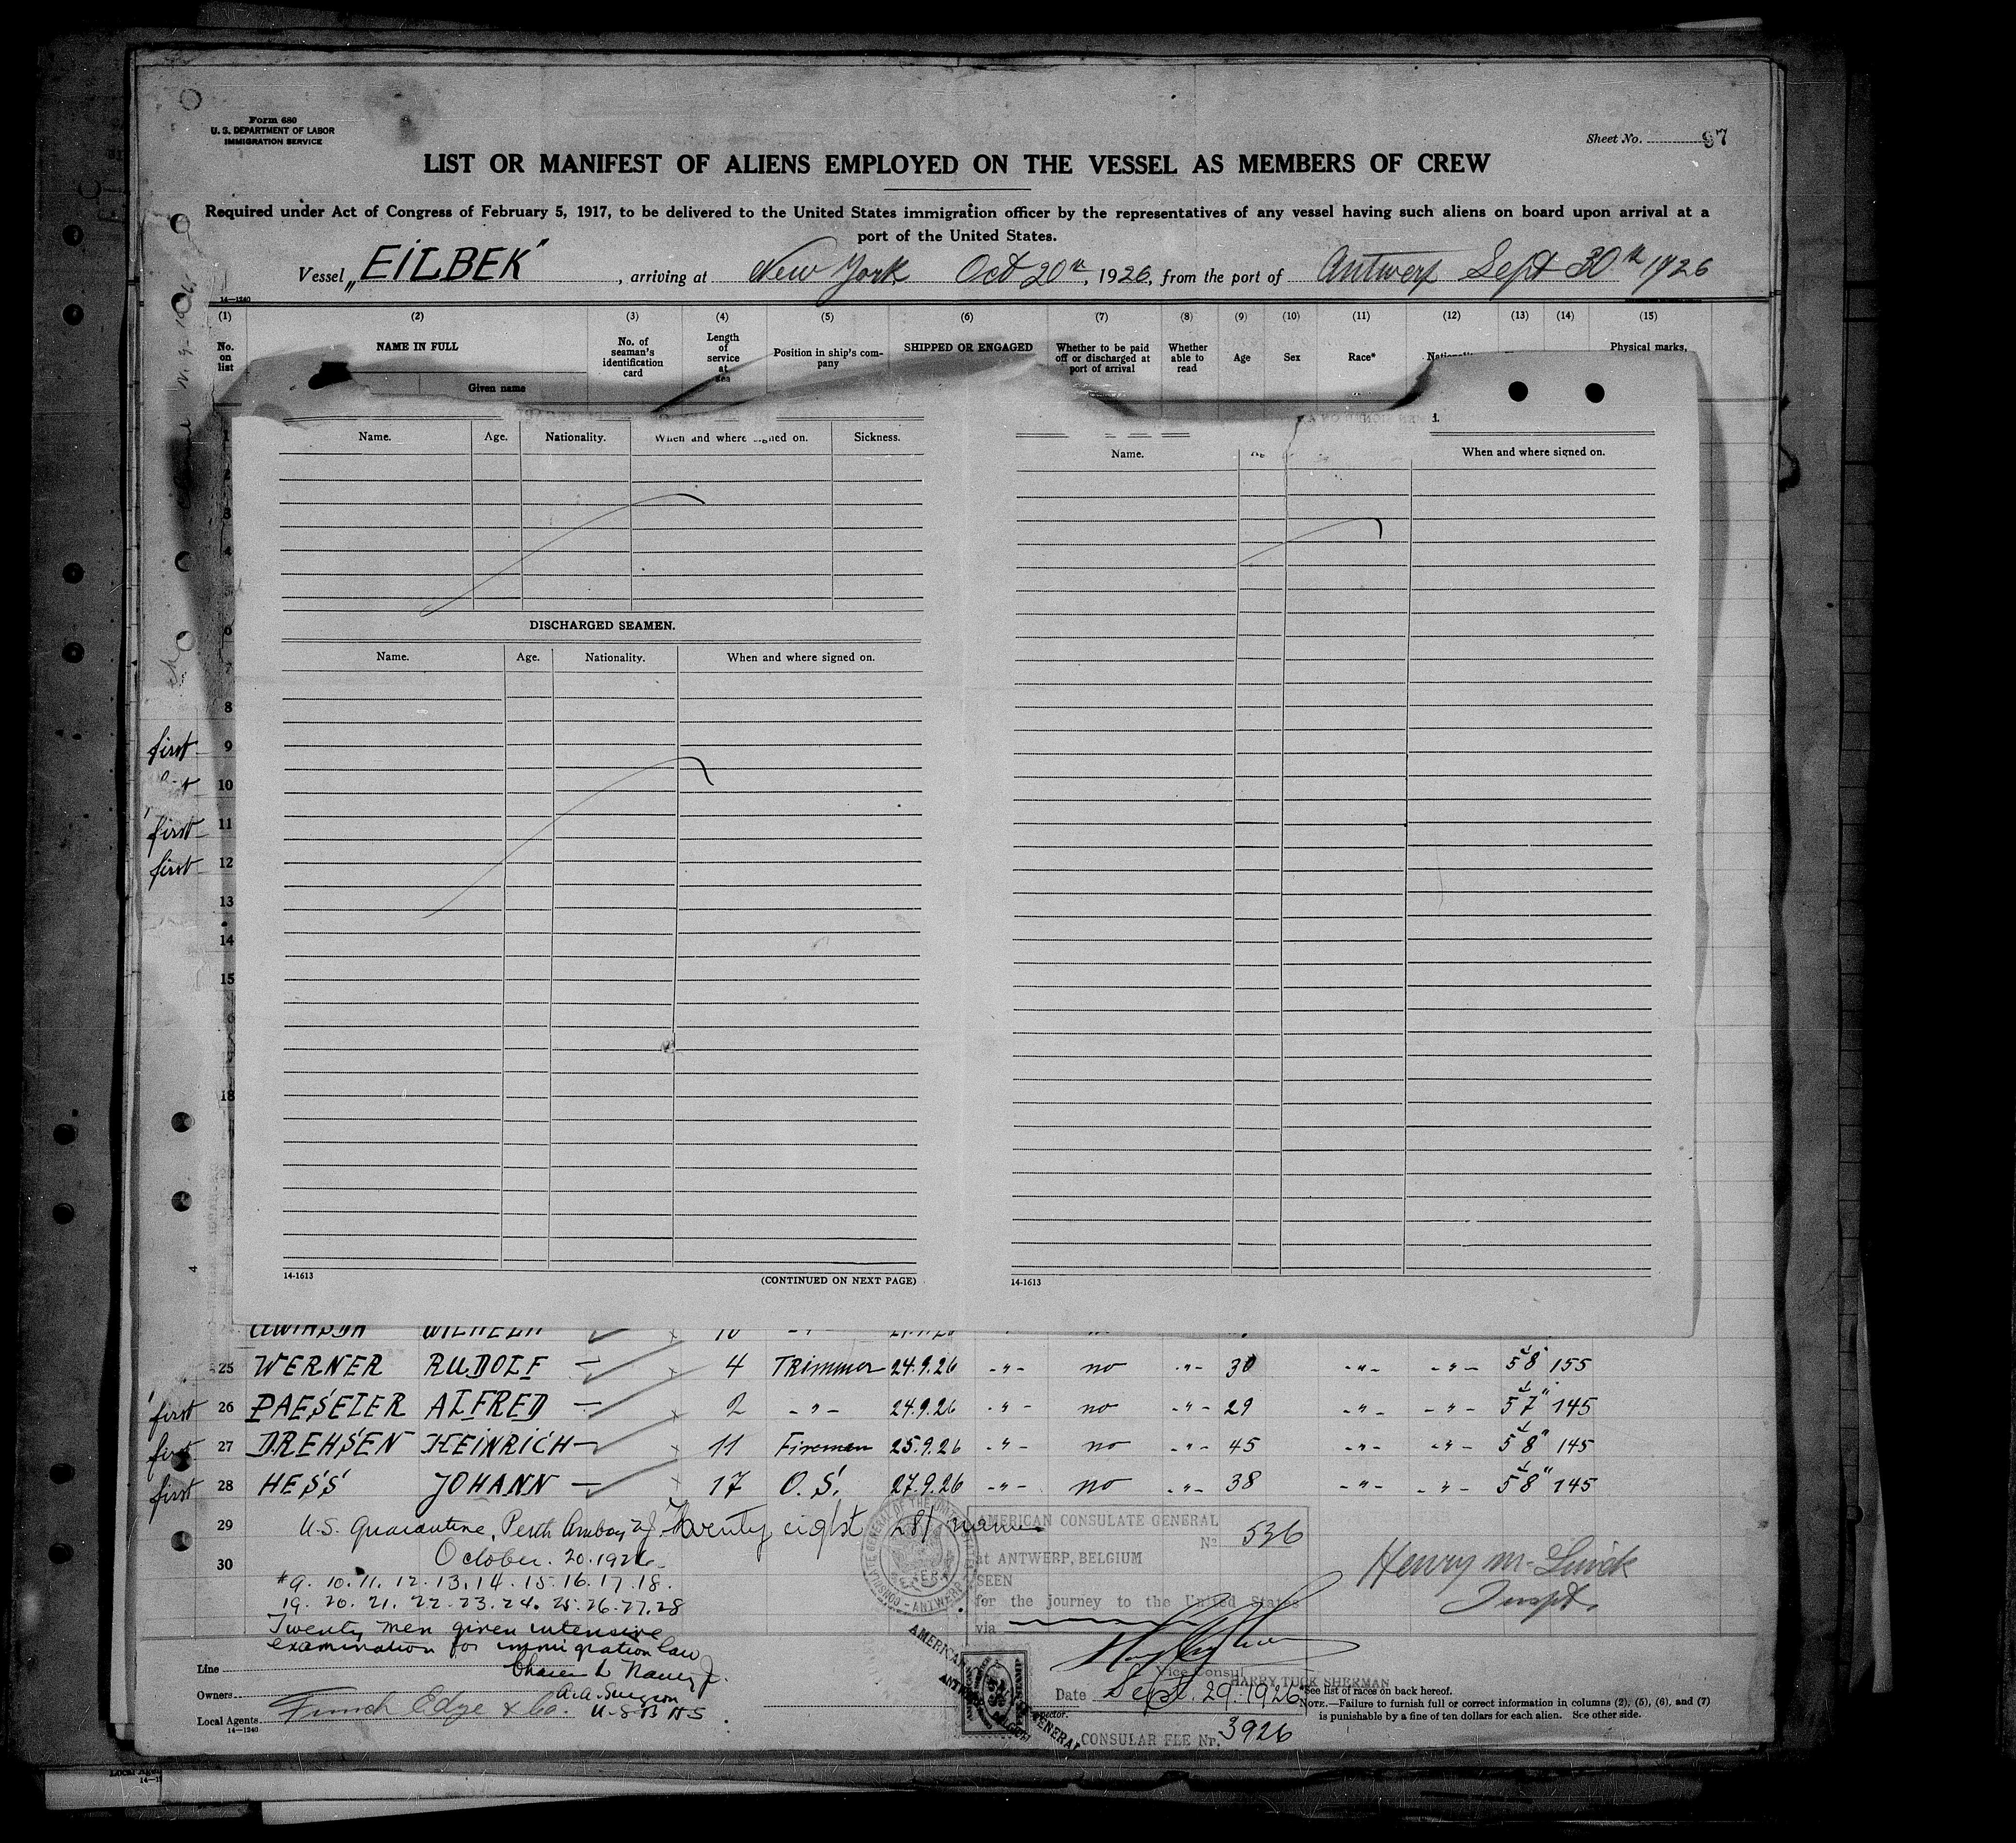 Form 680
U. S. DEPARTMENT OF LABOR
IMMIGRATION SERVICE
Sheet No. 97
LIST OR MANIFEST OF ALIENS EMPLOYED ON THE VESSEL AS MEMBERS OF CREW
Required under Act of Congress of February 5, 1917, to be delivered to the United States immigration officer by the representatives of any vessel having such aliens on board upon arrival at a
port of the United States.
Vessel „EILBEK", arriving at New York Oct 20th, 1926, from the port of Antwerp Sept 30th 1926
14—1240
(1) (2) (3) (4) (5) (6) (7) (8) (9) (10) (11) (12) (13) (14) (15)
No. on list
NAME IN FULL
Given name
No. of seaman's identification card
Length of service at sea
Position in ship's company
SHIPPED OR ENGAGED
Whether to be paid off or discharged at port of arrival
Whether able to read
Age
Sex
Race*
Physical marks,
Name. Age. Nationality. When and where signed on. Sickness.
Name. When and where signed on.
DISCHARGED SEAMEN.
Name. Age. Nationality. When and where signed on.
1
2
3
4
5
6
7
8
first 9
10
first 11
first 12
13
14
15
18
14-1613 (CONTINUED ON NEXT PAGE)
14-1613
WILHELM 10
25 WERNER RUDOLF — 4 Trimmer 24.9.26 -"- no -"- 30 -"- -"- 5'8" 155
first 26 PAESELER ALFRED — 2 -"- 24.9.26 -"- no -"- 29 -"- -"- 5'7" 145
first 27 DREHSEN HEINRICH — 11 Fireman 25.9.26 -"- no -"- 45 -"- -"- 5'8" 145
first 28 HESS JOHANN — 17 O.S. 27.9.26 -"- no -"- 38 -"- -"- 5'8" 145
29 U.S. Quarantine, Perth Amboy N.J. Twenty eight /28/ names
October. 20. 1926
30
#9. 10. 11. 12. 13. 14. 15. 16. 17. 18.
19. 20. 21. 22. 23. 24. 25. 26. 27. 28
Twenty men given intensive
examination for immigration law
A.A. Surgeon
AMERICAN CONSULATE GENERAL
No 536
at ANTWERP, BELGIUM
SEEN
for the journey to the United States
via
Vice Consul
HARRY TUCK SHERMAN
Date Sept. 29. 1926
CONSULAR FLE Nr. 3926
Henry M.
Inspt.
Line
Owners
Local Agents Funch Edye & Co.
14—1240
*See list of races on back hereof.
NOTE.—Failure to furnish full or correct information in columns (2), (5), (6), and (7)
is punishable by a fine of ten dollars for each alien. See other side.